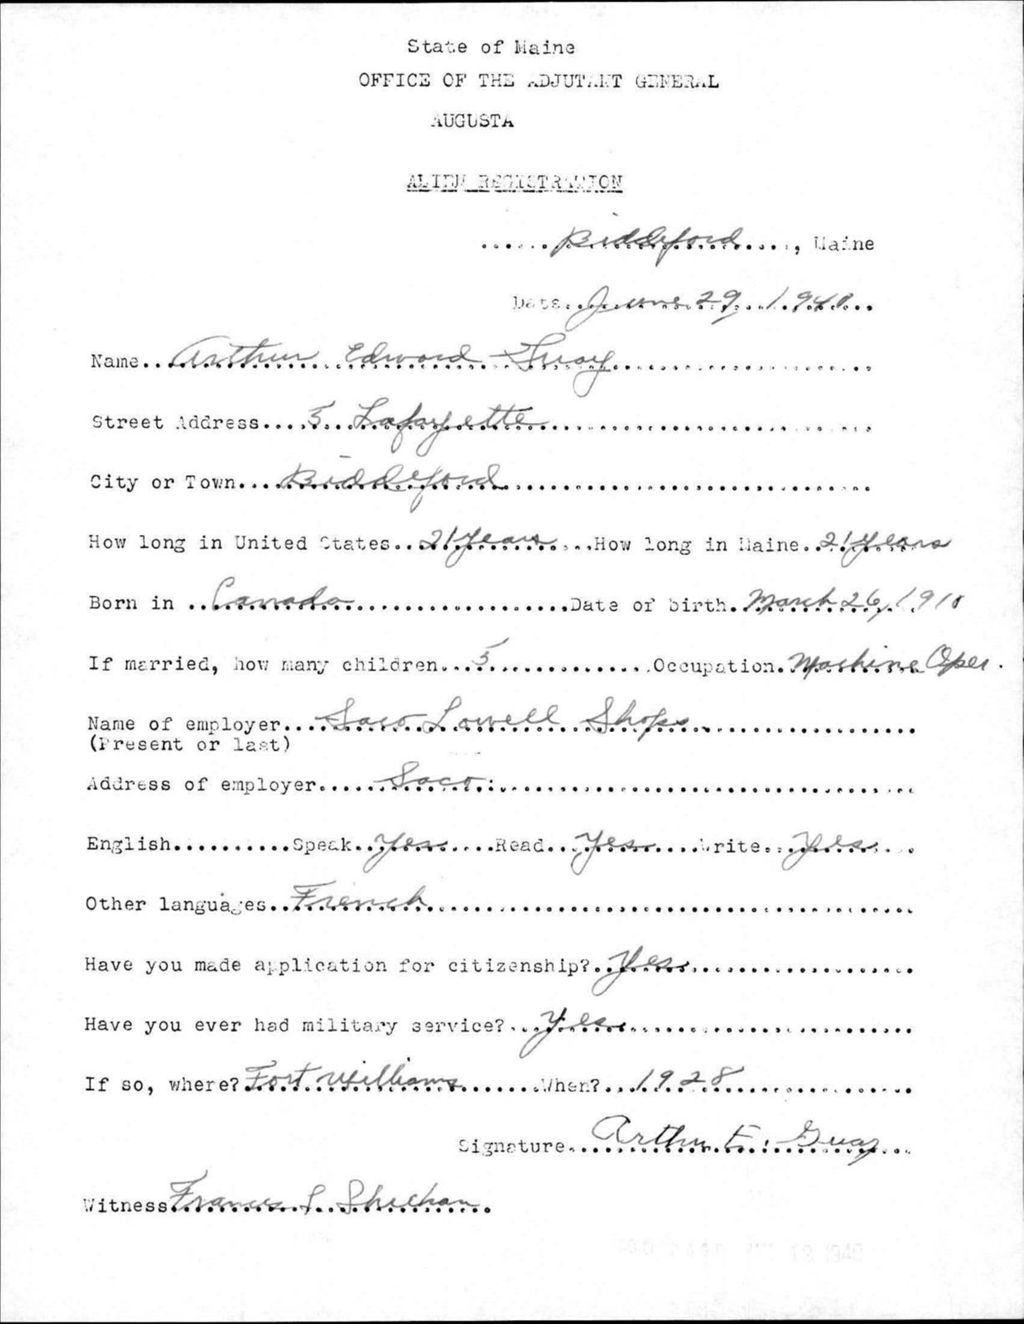 State of Maine
OFFICE OF THE ADJUTANT GENERAL
AUGUSTA
ALIEN REGISTRATION
......Biddeford......, Maine
Date..June 29, 1940..
Name...Arthur Edward Guay...
Street Address....5 Lafayette...
City or Town....Biddeford...
How long in United States..21 years....How long in Maine..21 years
Born in ..Canada...Date of birth.March 26, 1910
If married, how many children...5...Occupation.Machine Oper.
Name of employer....Saco Lowell Shops...
(Present or last)
Address of employer......Saco...
English..........Speak..Yes....Read..Yes....Write..Yes...
Other languages..French...
Have you made application for citizenship?..Yes...
Have you ever had military service?...Yes...
If so, where?.Fort Williams.......When?...1928...
Signature..Arthur E. Guay..
Witness Frances L. Sheehan.